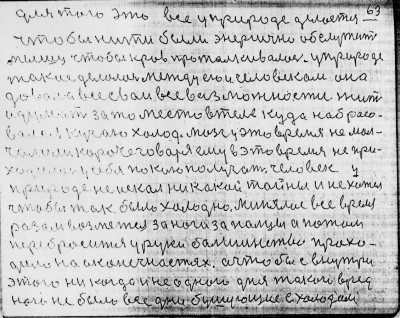 для того это все у природе делается 63
чтобы нити были энергично обслужит
мышцу чтобы кров проталкивалас. у природе
такие делалос между ею и человеком она
довала все свои все возможности жит
и думат за то место в теле куда набрасо-
вала кучаю холод. мозг у это время не мол-
чал или короче говаря ему в это время не при-
ходилос у себя покою получат. человек у
природе не искал никакой тайны и не хотел
чтобы так было холодно. менялос все время
разом возметса за нога за палцы а потом
перебросится у руки балшинство прохо-
дило на оконечностях. а чтобы с внутри
этого никогда и не одного дня такого вред
ного не было все дни бушующие с холодам